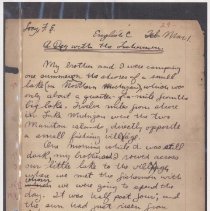 Ivory F. E.
English C Feb Mar 1
A Day with the Fishermen.
My brother and I were camping
one summer on the shores of a small
lake (in Northern Michigan) which was
only about a quarter of a mile from the
big lake. Twelve miles from shore
in Lake Michigan were the two
Manitou islands, directly opposite
a small fishing village.
One morning while it was still
dark, my brother and I rowed across
our little lake to the village
where we met the fishermen with
whom we were going to spend the
day. It was half past four, and
the sun had just risen from